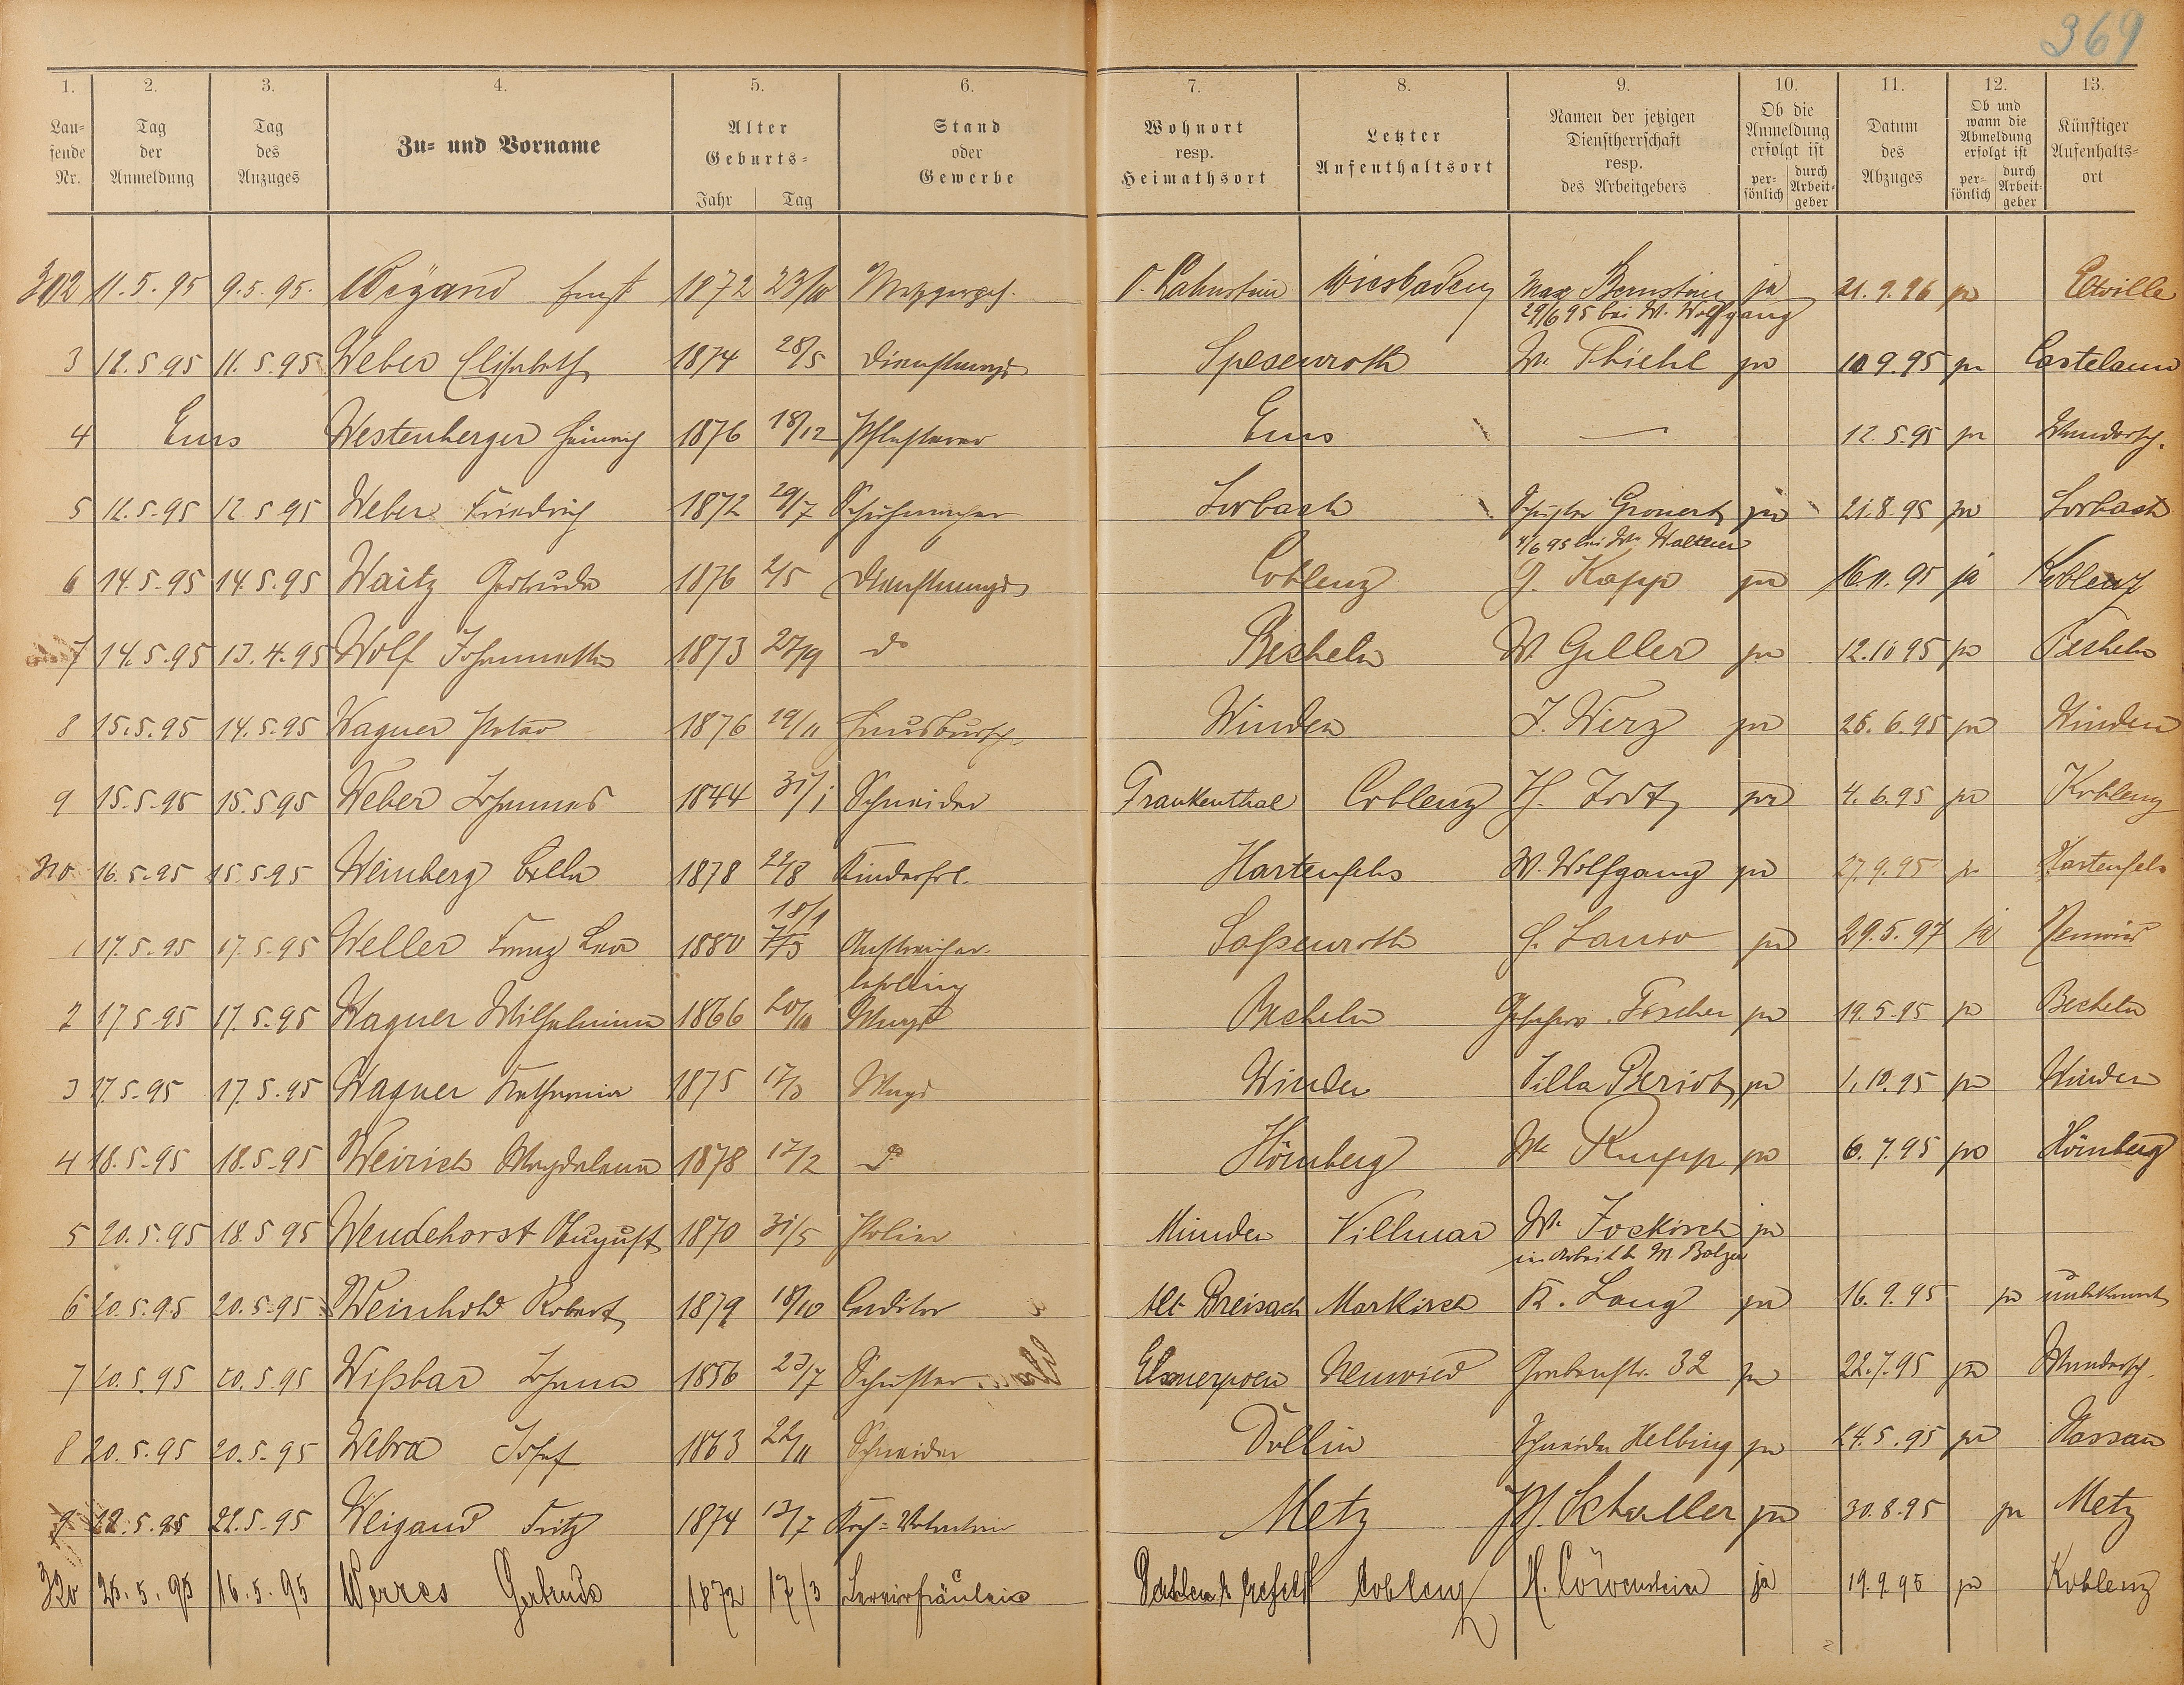 369
1. 2. 3. 4. 5. 6. 7. 8. 9. 10. 11. 12. 13.
Lau-
fende
Nr.
Tag
der
Anmeldung
Tag
des
Anzuges
Zu- und Vorname
Alter
Geburts-
Jahr Tag
Stand
oder
Gewerbe
Wohnort
resp.
Heimathsort
Letzter
Aufenthaltsort
Namen der jetzigen
Dienstherrschaft
resp.
des Arbeitgebers
Ob die
Anmeldung
erfolgt ist
per-
sönlich
durch
Arbeit-
geber
Datum
des
Abzuges
Ob und
wann die
Abmeldung
erfolgt ist
per-
sönlich
durch
Arbeit-
geber
Künftiger
Aufenhalts-
ort
302 11.5.95 9.5.95. Weygand Ernst 1872 23/10 Metzgerges. O. Lahnstein Wiesbaden Max Bernstein ja 21.9.96 ja Eltville
29/6 95 bei W. Wolfgang
3 12.5.95 11.5.95 Weber Elisabeth 1874 28/5 Dienstmagd Spesenroth W. Thiehl ja 10 9.95 ja Castelaun
4 Ems Westenberger Heinrich 1876 18/12 Pflasterer Ems — 12.5.95 ja Wandersch.
5 12.5.95 12 5 95 Weber Friedrich 1872 29/7 Schuhmacher Lorbach Schuster Gronert ja 21.8.95 ja Lorbach
4/6 95 bei W.
6 14.5.95 14.5.95 Waitz Gertrude 1876 2/5 Dienstmagd Coblenz G. Kapp ja 16.11.95 ja Koblenz
7 14.5.95 13.4.95 Wolf Johannette 1873 27/9 do Becheln W. Geller ja 12.10 95 ja Becheln
8 15.5.95 14.5.95 Wagner Peter 1876 19/11 Hausbursch. Winden J. Werz ja 26.6.95 ja Winden
9 15.5.95 15.5 95 Weber Johannes 1844 31/1 Schneider Frankenthal Coblenz H. ja 4.6.95 ja Koblenz
310 16.5.95 15.5.95 Weinberg Bella 1878 22/8 Kinderfrl. Hartenfels W. Wolfgang ja 27.9.95 ja Hartenfels
18/1
1 17.5.95 17.5.95 Weller Franz 1880 Anstreicher- ja 29.5.97 ja Neuwied
lehrling
2 17 5 95 17.5.95 Wagner Wilhelmine 1866 20/10 Magd Becheln Geschw. Fischer ja 19.5.95 ja Becheln
3 17.5.95 17.5.95 Wagner Katharina 1875 17/3 Magd Winden Villa Beriot ja 1.10.95 ja Winden
4 18.5.95 18.5.95 Weirich Magdalena 1878 17/2 do Hömberg We Rupp ja 6.7.95 ja Hömberg
5 20.5.95 18.5 95 Wendehorst August 1870 31/5 Polier Minden Villmar We Joskirch ja
in Arbeit b. M. Balzer
6 20.5.95 20.5.95 Weinhold Robert 1879 18/10 Conditor Alt Breisach Markirch K. Lang ja 16.9.95 ja unbekannt
7 20.5.95 20.5.95 Wißbar Johann 1856 23/7 Schuster Neuwied Grabenstr. 32 ja 22.7.95 ja Wandersch.
8 20.5.95 20.5.95 Webra Josef 1863 22/11 Schneider Dollin Schneider Helbing ja 24.5.95 ja Nassau
9 22.5.95 22.5.95 Weigand Fritz 1874 13/7 Koch-Volontair Metz Ph. Schaller ja 30.8.95 ja Metz
320 25.5.95 16.5.95 Werres Gertrude 1872 17/3 Servierfräulein Coblenz H. Löwenstein ja 19.9.95 ja Koblenz